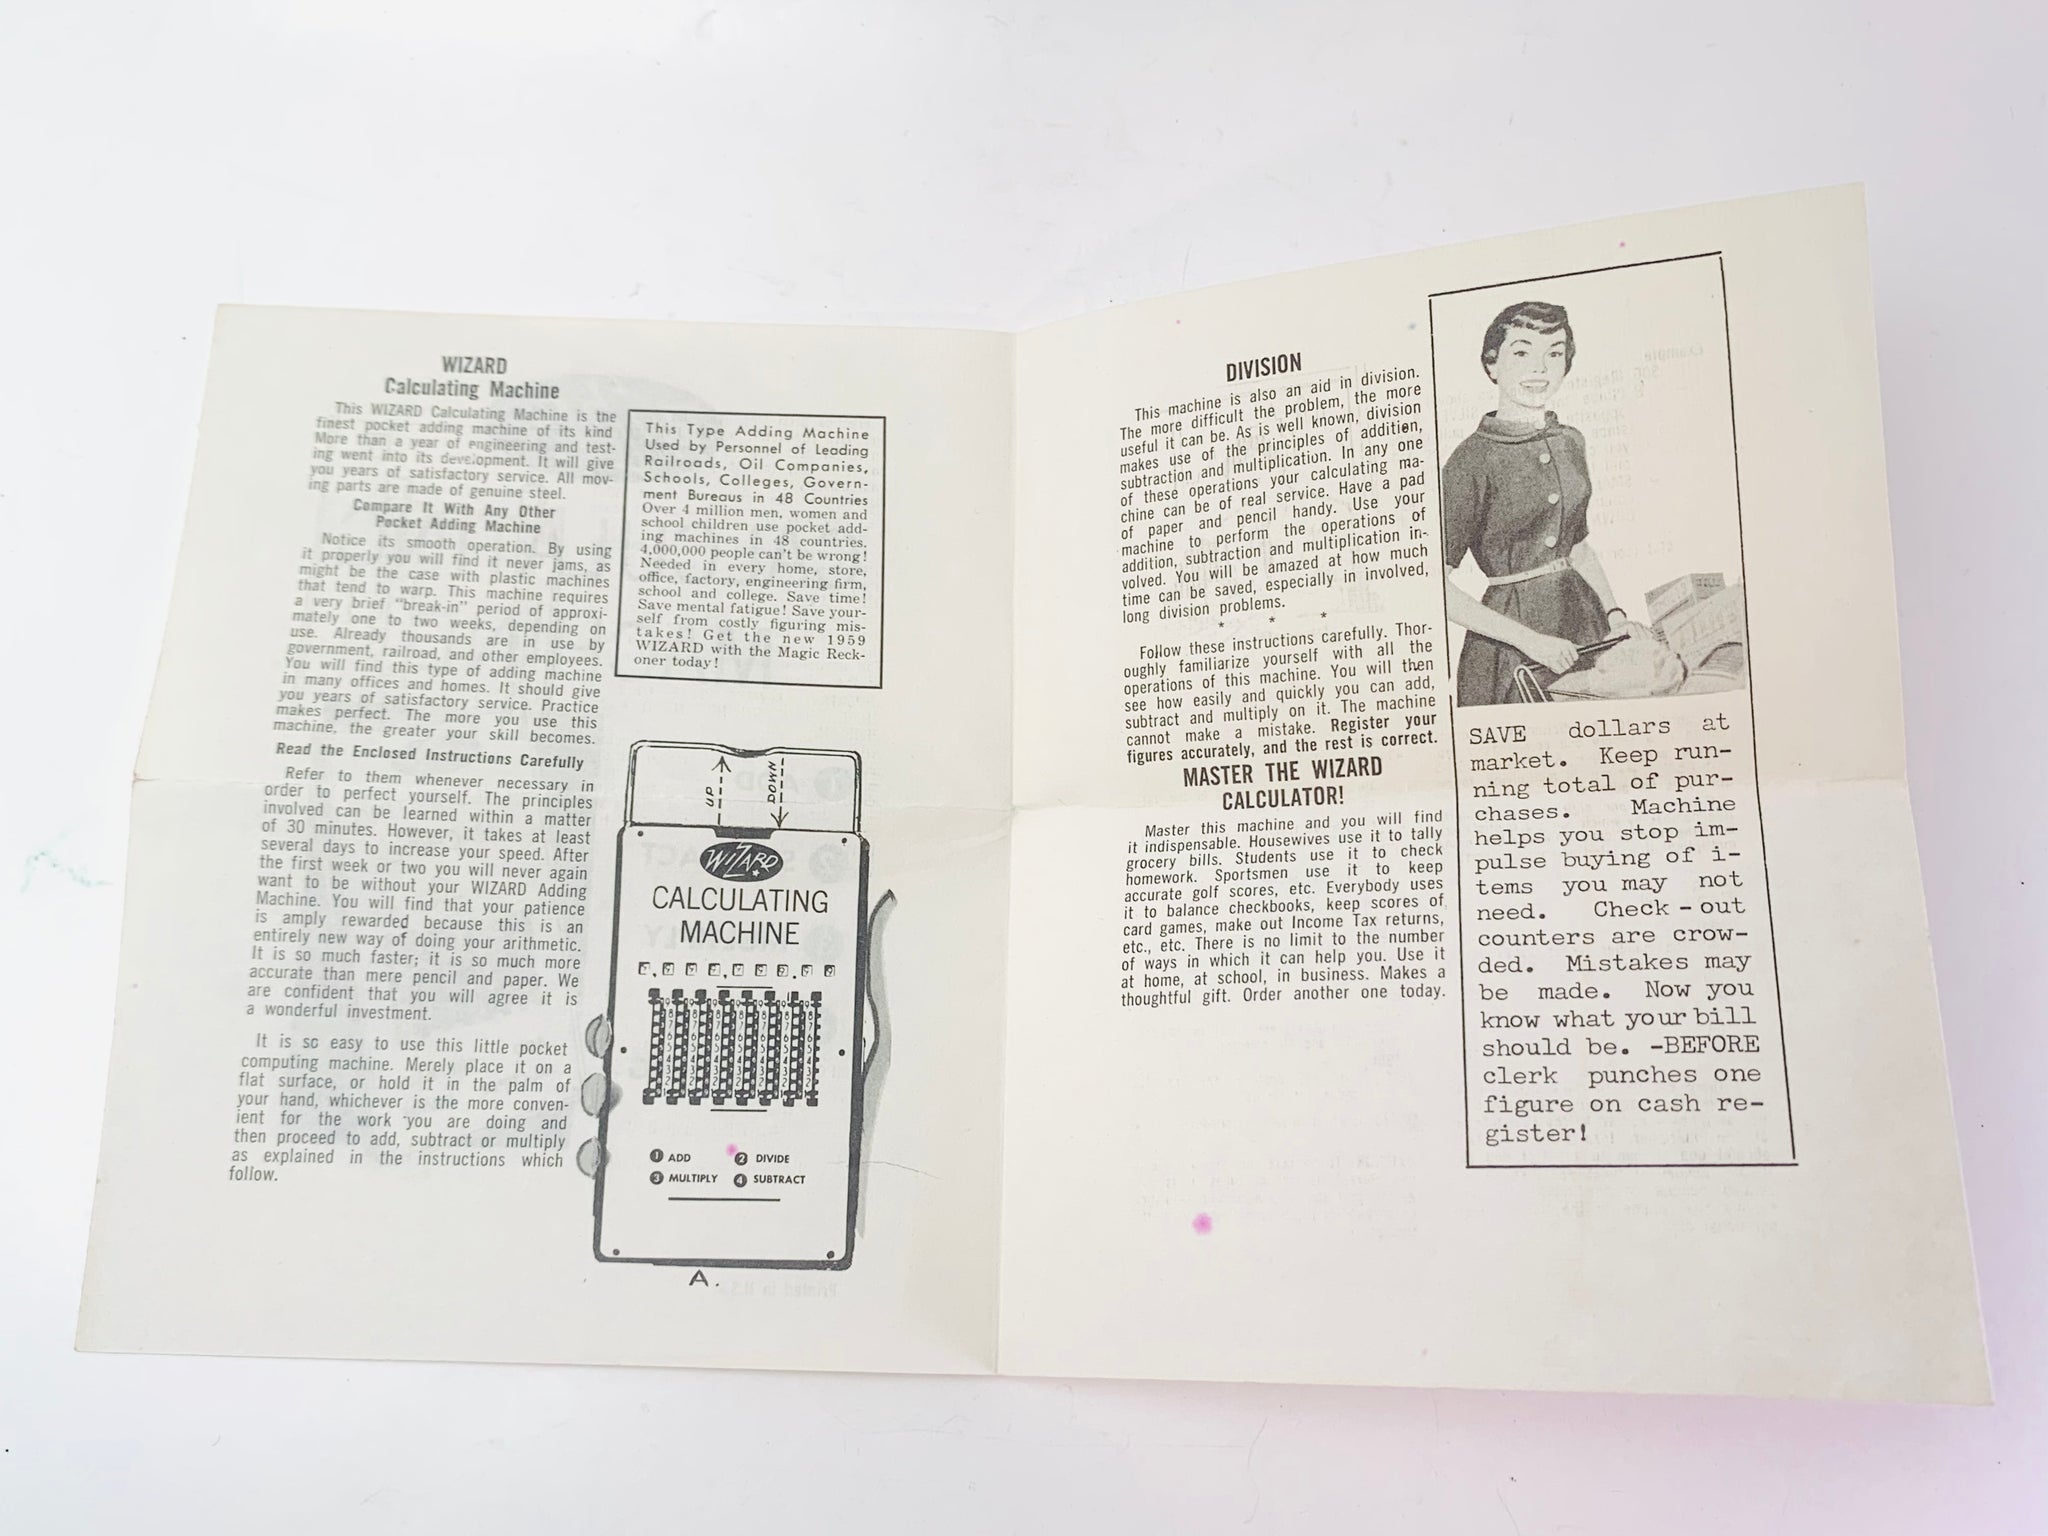 WIZARD
Calculating Machine
This WIZARD Calculating Machine is the
finest pocket adding machine of its kind
More than a year of engineering and test-
ing went into its development. It will give
you years of satisfactory service. All mov-
ing parts are made of genuine steel.
Compare It With Any Other
Pocket Adding Machine
Notice its smooth operation. By using
it properly you will find it never jams, as
might be the case with plastic machines
that tend to warp. This machine requires
a very brief "break-in" period of approxi-
mately one to two weeks, depending on
use. Already thousands are in use by
government, railroad, and other employees.
You will find this type of adding machine
in many offices and homes. It should give
you years of satisfactory service. Practice
makes perfect. The more you use this
machine, the greater your skill becomes.
Read the Enclosed Instructions Carefully
Refer to them whenever necessary in
order to perfect yourself. The principles
involved can be learned within a matter
of 30 minutes. However, it takes at least
several days to increase your speed. After
the first week or two you will never again
want to be without your WIZARD Adding
Machine. You will find that your patience
is amply rewarded because this is an
entirely new way of doing your arithmetic.
It is so much faster; it is so much more
accurate than mere pencil and paper. We
are confident that you will agree it is
a wonderful investment.
It is so easy to use this little pocket
computing machine. Merely place it on a
flat surface, or hold it in the palm of
your hand, whichever is the more conven-
ient for the work you are doing and
then proceed to add, subtract or multiply
as explained in the instructions which
follow.
This Type Adding Machine
Used by Personnel of Leading
Railroads, Oil Companies,
Schools, Colleges, Govern-
ment Bureaus in 48 Countries
Over 4 million men, women and
school children use pocket add-
ing machines in 48 countries.
4,000,000 people can't be wrong!
Needed in every home, store,
office, factory, engineering firm,
school and college. Save time!
Save mental fatigue! Save your-
self from costly figuring mis-
takes! Get the new 1959
WIZARD with the Magic Reck-
oner today!
UP DOWN
WIZARD
CALCULATING
MACHINE
1 ADD 2 DIVIDE
3 MULTIPLY 4 SUBTRACT
A.
DIVISION
This machine is also an aid in division.
The more difficult the problem, the more
useful it can be. As is well known, division
makes use of the principles of addition,
subtraction and multiplication. In any one
of these operations your calculating ma-
chine can be of real service. Have a pad
of paper and pencil handy. Use your
machine to perform the operations of
addition, subtraction and multiplication in-
volved. You will be amazed at how much
time can be saved, especially in involved,
long division problems.
* * *
Follow these instructions carefully. Thor-
oughly familiarize yourself with all the
operations of this machine. You will then
see how easily and quickly you can add,
subtract and multiply on it. The machine
cannot make a mistake. Register your
figures accurately, and the rest is correct.
MASTER THE WIZARD
CALCULATOR!
Master this machine and you will find
it indispensable. Housewives use it to tally
grocery bills. Students use it to check
homework. Sportsmen use it to keep
accurate golf scores, etc. Everybody uses
it to balance checkbooks, keep scores of
card games, make out Income Tax returns,
etc., etc. There is no limit to the number
of ways in which it can help you. Use it
at home, at school, in business. Makes a
thoughtful gift. Order another one today.
SAVE dollars at
market. Keep run-
ning total of pur-
chases. Machine
helps you stop im-
pulse buying of i-
tems you may not
need. Check-out
counters are crow-
ded. Mistakes may
be made. Now you
know what your bill
should be. -BEFORE
clerk punches one
figure on cash re-
gister!